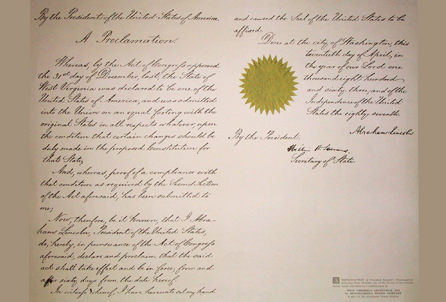 By the President of the United States of America
A Proclamation.
Whereas, by the Act of Congress approved
the 31st day of December, last, the State of
West Virginia was declared to be one of the
United States of America, and was admitted
into the Union on an equal footing with the
original States in all respects whatever, upon
the condition that certain changes should be
duly made in the proposed Constitution for
that State;
And, whereas, proof of a compliance with
that condition as required by the Second Section
of the Act aforesaid, has been submitted to
me;
Now, therefore, be it known, that I Abra-
ham Lincoln, President of the United States,
do, hereby, in pursuance of the Act of Congress
aforesaid, declare and proclaim that the said
act shall take effect and be in force, from and
after sixty days from the date hereof.
In witness whereof, I have hereunto set my hand
and caused the Seal of the United States to be
affixed.
Done at the city of Washington, this
twentieth day of April, in
the year of our Lord one
thousand eight hundred
and sixty three, and of the
Independence of the United
States the eighty seventh.
Abraham Lincoln
By the President:
Secretary of State.